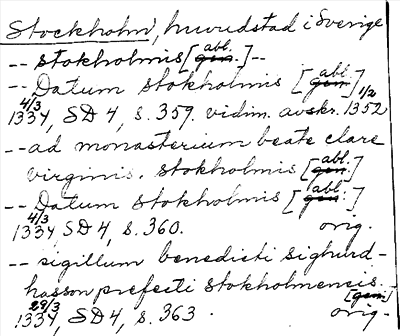 Stockholm, huvudstad i Sverige
-- stokholmis [gen. abl.] --
-- Datum stokholmis [gen. abl.]
4/3 1334, SD 4, s. 359. vidim. avskr. 1/2 1352
-- ad monasterium beate clare
virginis. stokholmis [gen. abl.]
-- Datum stokholmis [gen. abl.]
4/3 1334 SD 4, s. 360. orig.
-- sigillum benedicti sighurd-
hasson prefecti stokholmensis. - [gen.]
29/3 1334, SD 4, s. 363. orig.